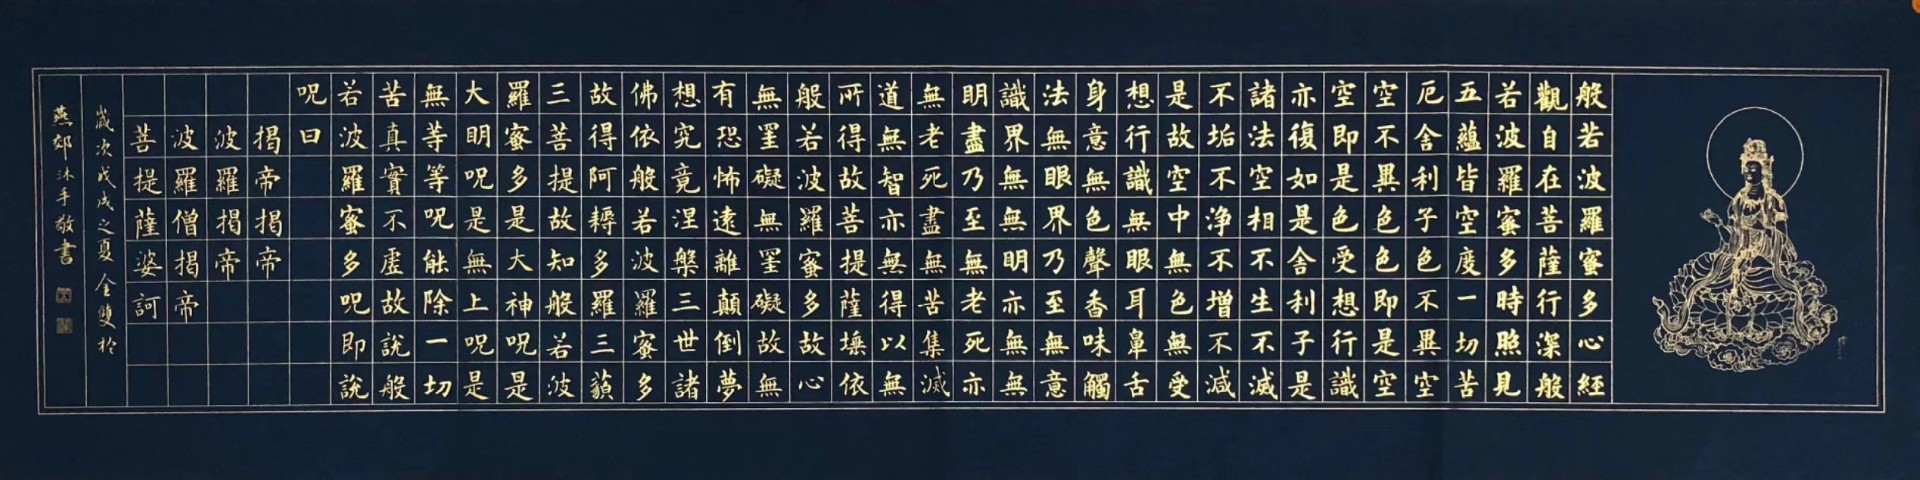 般若波羅蜜多心經
觀自在菩薩行深般
若波羅蜜多時照見
五蘊皆空度一切苦
厄舍利子色不異空
空不異色色即是空
空即是色受想行識
亦復如是舍利子是
諸法空相不生不滅
不垢不淨不增不減
是故空中無色無受
想行識無眼耳鼻舌
身意無色聲香味觸
法無眼界乃至無意
識界無無明亦無無
明盡乃至無老死亦
無老死盡無苦集滅
道無智亦無得以無
所得故菩提薩埵依
般若波羅蜜多故心
無罣礙無罣礙故無
有恐怖遠離顛倒夢
想究竟涅槃三世諸
佛依般若波羅蜜多
故得阿耨多羅三藐
三菩提故知般若波
羅蜜多是大神呪是
大明呪是無上呪是
無等等呪能除一切
苦真實不虛故說般
若波羅蜜多呪即說
呪曰
揭帝揭帝
波羅揭帝
波羅僧揭帝
菩提薩婆訶
歲次戊戌之夏金雙於
燕郊沐手敬書